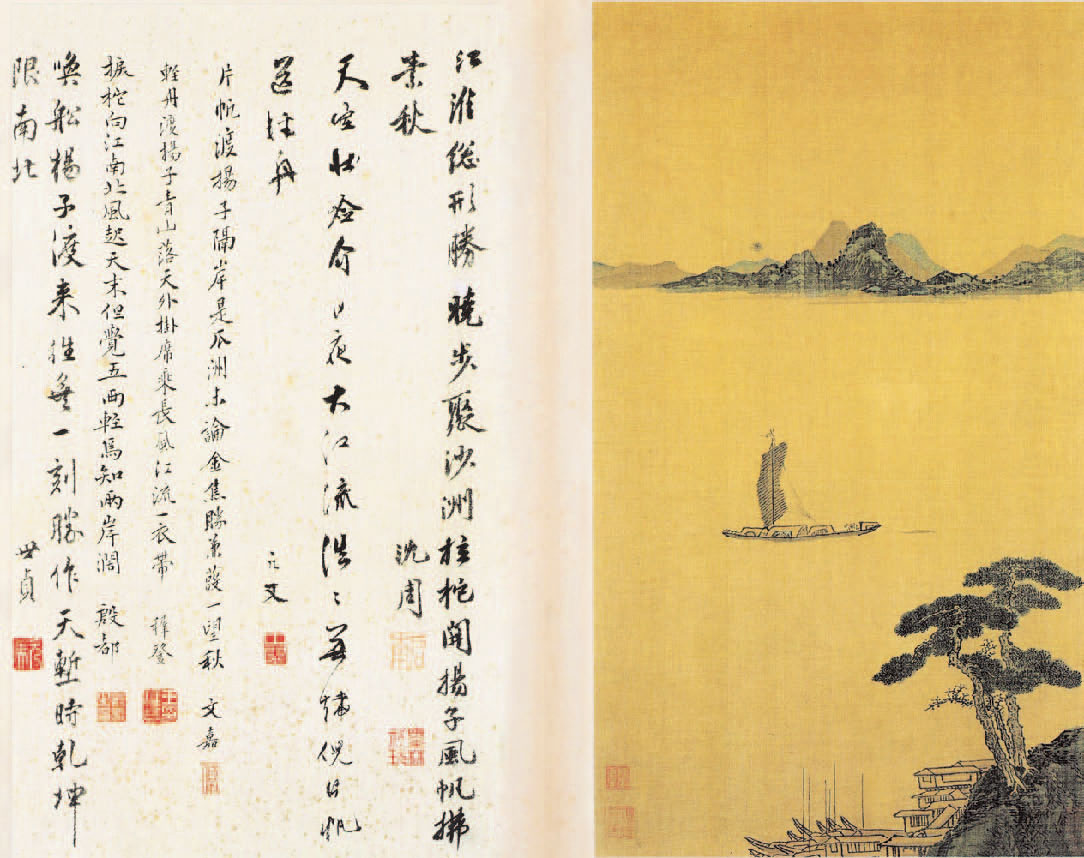 江淮總形勝曉步聚沙洲開揚子風帆拂
素秋 沈周
天空壯夜大江流浩〻無端倪片帆
輕舟 元文
片帆渡揚子隔岸是瓜洲未論金焦勝蒹葭一望秋 文嘉
輕舟渡揚子青山落天外掛席乘長風江流一衣帶 穉登
捩柁向江南北風起天末但覺五兩輕焉知兩岸濶 殷都
喚船楊子渡来往無一刻勝作天塹時乾坤
限南北 世貞